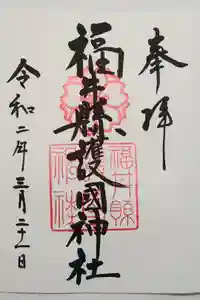 奉拝
福井縣護國神社
令和二年三月二十一日
福井縣